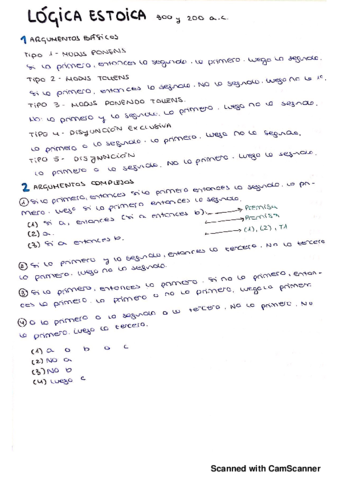 LÓGICA ESTOICA 300 y 200 a.c.
1 ARGUMENTOS BÁSICOS
TIPO 1 - MODUS PONENS
Si lo primero, entonces lo segundo. Lo primero. Luego lo segundo.
TIPO 2 - MODUS TOLLENS
Si lo primero, entonces lo segundo. No lo segundo. Luego no lo 1º.
TIPO 3 - MODUS PONENDO TOLLENS.
No lo primero y lo segundo. Lo primero. Luego no lo segundo.
TIPO 4 - DISYUNCIÓN EXCLUSIVA
Lo primero o lo segundo. Lo primero. Luego no lo segundo.
TIPO 5 - DISYUNCIÓN
Lo primero o lo segundo. No lo primero. Luego lo segundo.
2 ARGUMENTOS COMPLEJOS
① Si lo primero, entonces si lo primero entonces lo segundo. Lo pri-
mero. Luego si lo primero entonces lo segundo.
(1) Si a, entonces (si a entonces b). Premisa
(2) a. Premisa
(3) Si a entonces b. (1), (2), T1
② Si lo primero y lo segundo, entonces lo tercero. No lo tercero
lo primero. Luego no lo segundo.
③ Si lo primero, entonces lo primero. Si no lo primero, enton-
ces lo primero. Lo primero o no lo primero. Luego lo primero.
④ O lo primero o lo segundo o lo tercero. No lo primero. No
lo primero. Luego lo tercero.
(1) a o b o c
(2) No a
(3) No b
(4) Luego c
Scanned with CamScanner